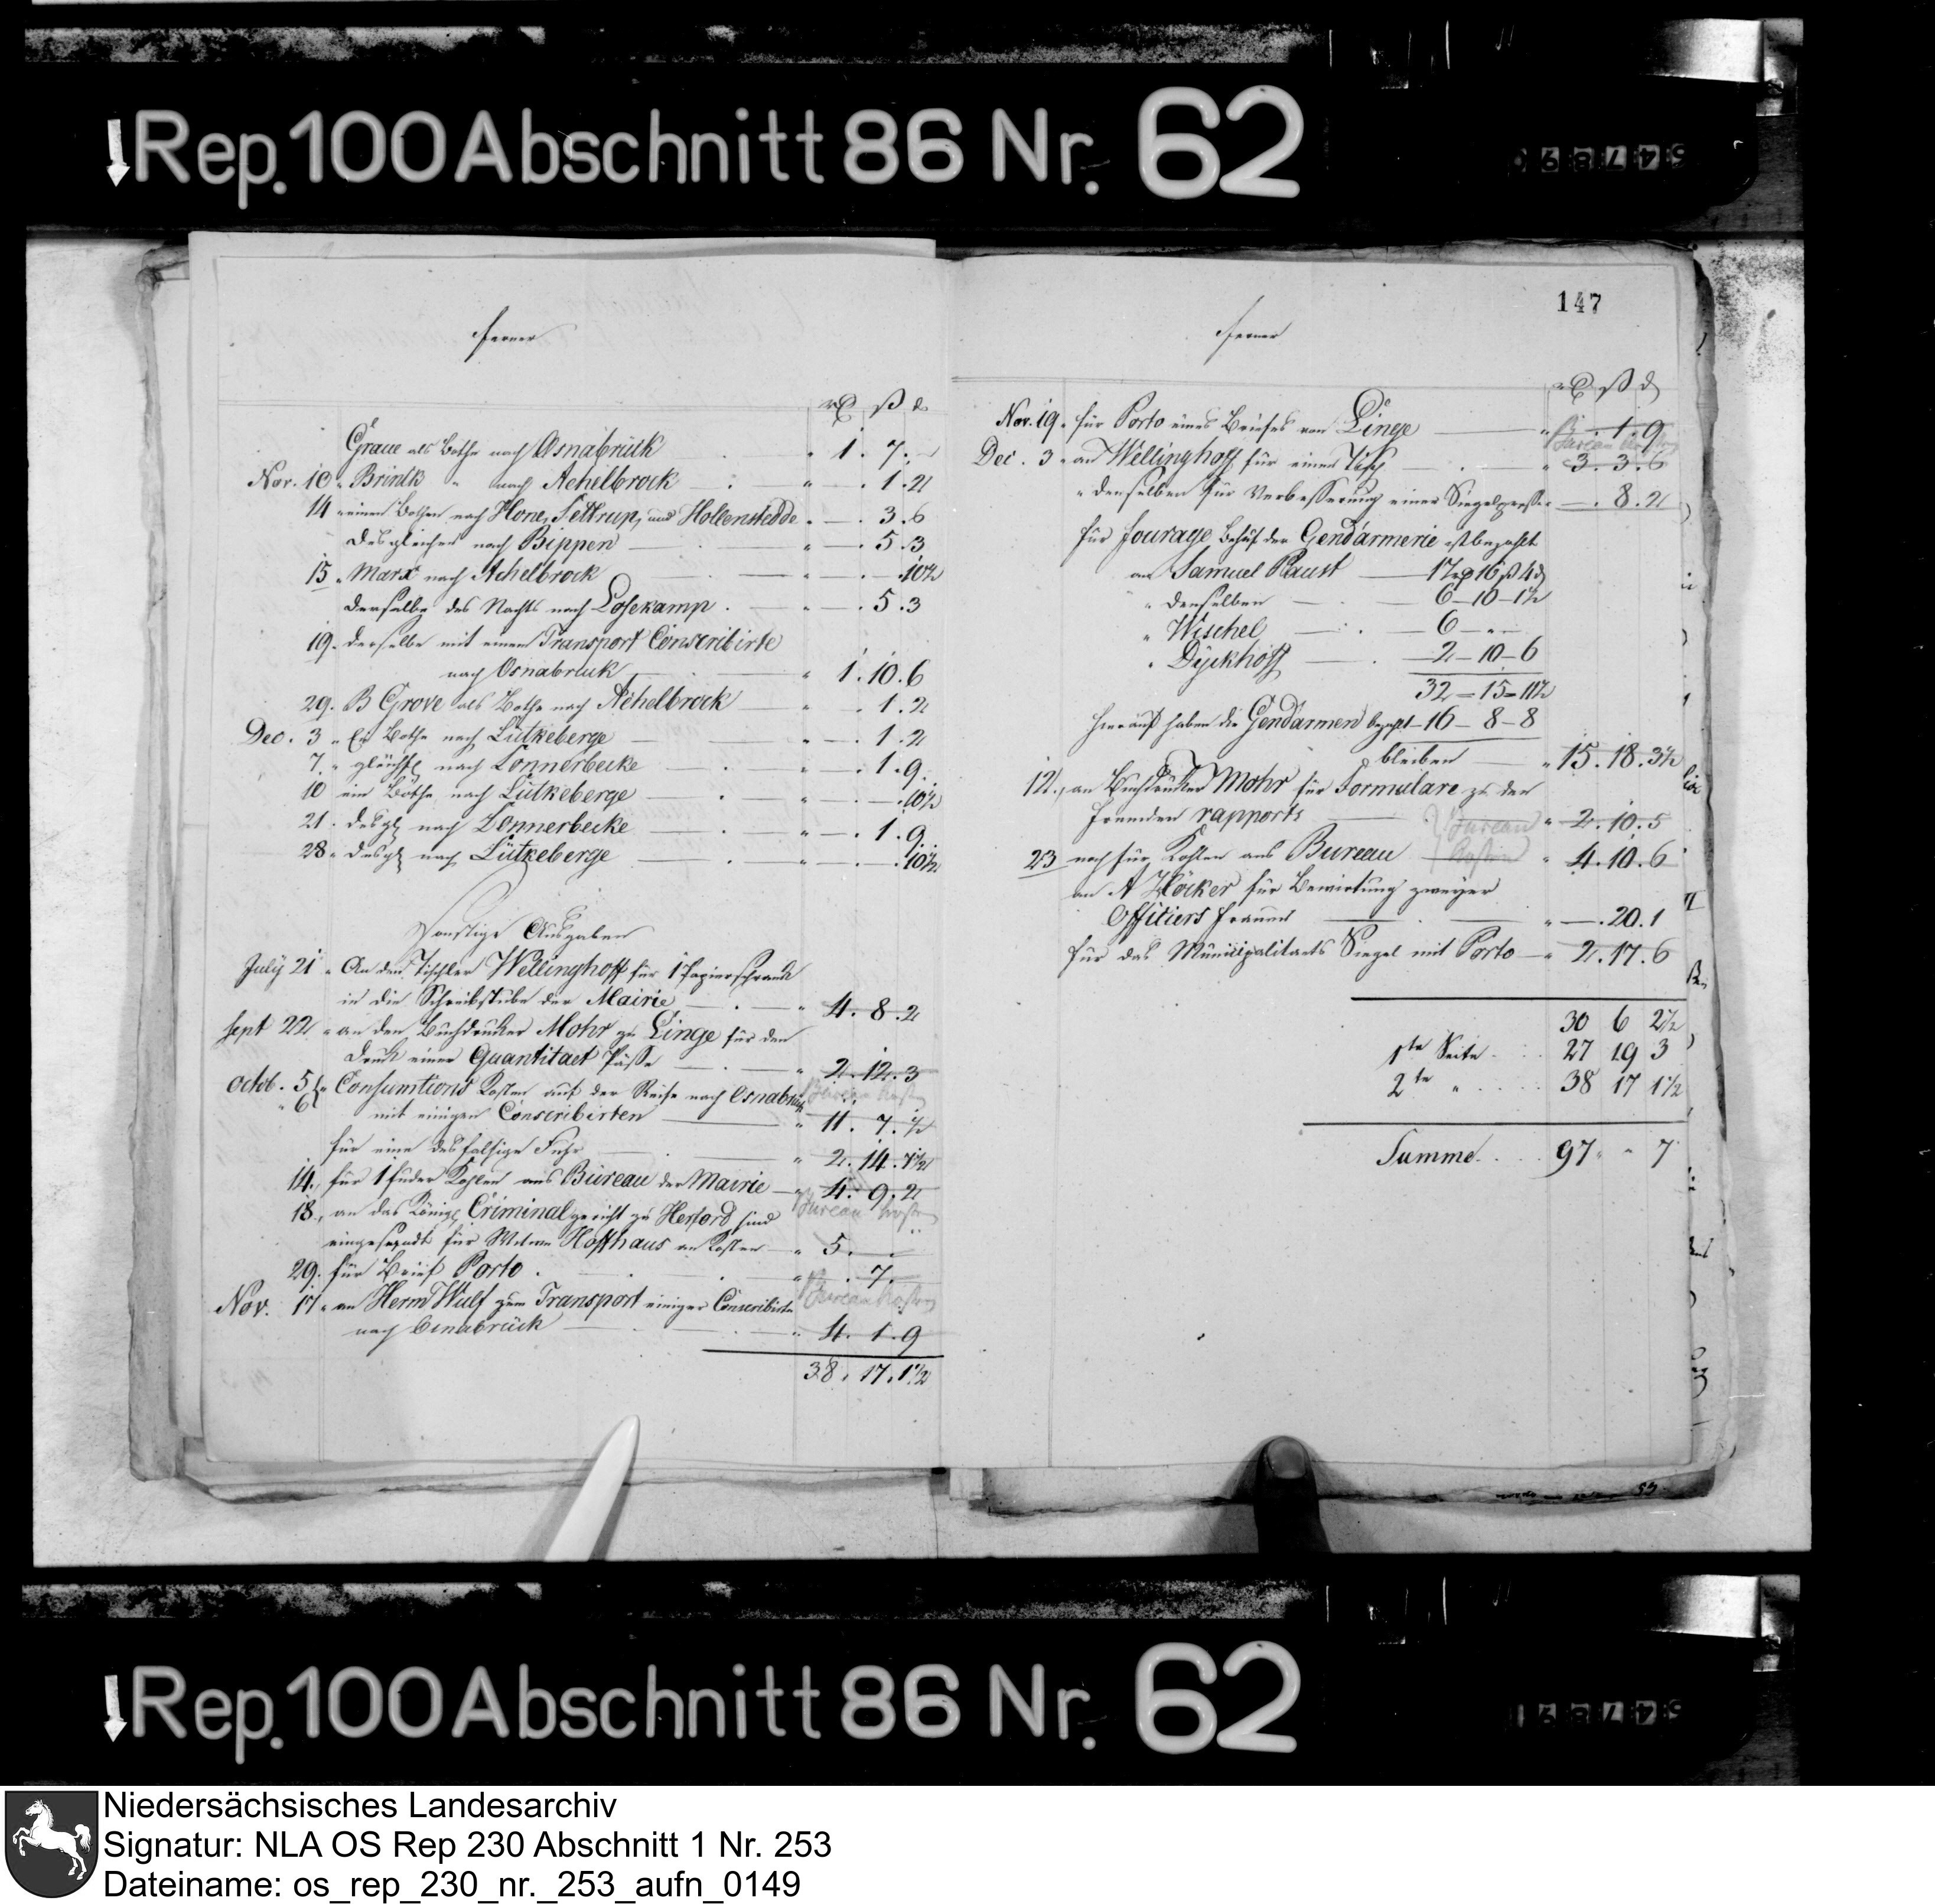 Rep. 100 Abschnitt 86 Nr. 62
ferner
rƷ ß d
Graue als Bothe nach Osnabrück " 1. 7. –
Nov. 10 " Brinck " nach Achelbrock " – . 1. 2
14 " einen Bothen nach Hone, Settrup, und Hollenstedde " – . 3. 6
desgleichen nach Bippen " – . 5. 3
15 " Marx nach Achelbrock " – . – . 10½
derselbe des Nachts nach Losekamp " – . 5. 3
19 " derselbe mit einem Transport Conscribirte
nach Osnabruck " 1. 10. 6
29. B Grove als Bothe nach Achelbrock " – . 1. 2
Dec. 3 " Ein Bothe nach Lütkeberge " – . 1. 2
7. " gleichfls nach Lonnerbecke " – . 1. 9
10 ein Bothe nach Lütkeberge " – . – . 10½
21. desgl nach Lonnerbecke " – . 1. 9
28 " desgl nach Lütkeberge – . – . 10½
Sonstige Ausgaben
July 21 " An den Tischler Wellinghoff für 1 Papierschrank
in die Schreibstube der Mairie " 4. 8. 2
Sept 22 " an den Buchdrucker Mohr zu Linge für den
Druck einer Quantitaet Pässe " 2. 12. 3
Octob. 5 " Consumtions Kosten auf der Reise nach Osnabrück
Bureau Kosten
" 6 mit einigen Conscribirten " 11. 7. ½
für eine desfalsige Fuhr " 2. 14. 7½
14. " für 1 Fuder Kohlen aus Bureau der Mairie " 4. 9. 2
Bureau Kosten
18. " an das Königl Criminalgericht zu Herford sind
eingesandt für Witwe Hoffhaus an Kosten " 5. –
29. für Brief Porto " . 7. –
Bureau Kosten
Nov. 17 " an Herm Wulf zum Transport einiger Conscribirte
nach Osnabrück " 4. 1. 9
38. 17. 1½
147
ferner
rƷ ß d
Nov. 19 " für Porto eines Briefes von Linge " – . 1. 9
Bureau Kosten
Dec. 3 " an Wellinghoff für einen Tisch " 3. 3. 6
" denselben für Verbesserung einer Siegelpresse " – . 8. 2
für Fourage Behuf der Gendarmerie ist bezahlt
an Samuel Raust 17 rƷ 16 ß 4 d
" denselben 6 – 10 – 1½
" Wischel 6 – " –
" Dyckhoff 2 – 10 – 6
32 – 15 – 11½
hierauf haben die Gendarmen bezahlt 16 – 8 – 8
bleiben " 15. 18. 3½
12. " an Buchdrucker Mohr für Formulare zu den
fremden rapports " 2. 10. 5
Bureau
Kosten
23 noch für Kohlen aus Bureau " 4. 10. 6
an A Höcker für Bewirtung zweyer
Offitiers Frauen " – . 20. 1
für das Municipalitaets Siegel mit Porto " 2. 17. 6
30 6 2½
1te Seite . . . 27 19 3
2te " . . . . 38 17 1½
Summe . . . 97 " " 7
Rep. 100 Abschnitt 86 Nr. 62
Niedersächsisches Landesarchiv
Signatur: NLA OS Rep 230 Abschnitt 1 Nr. 253
Dateiname: os_rep_230_nr._253_aufn_0149